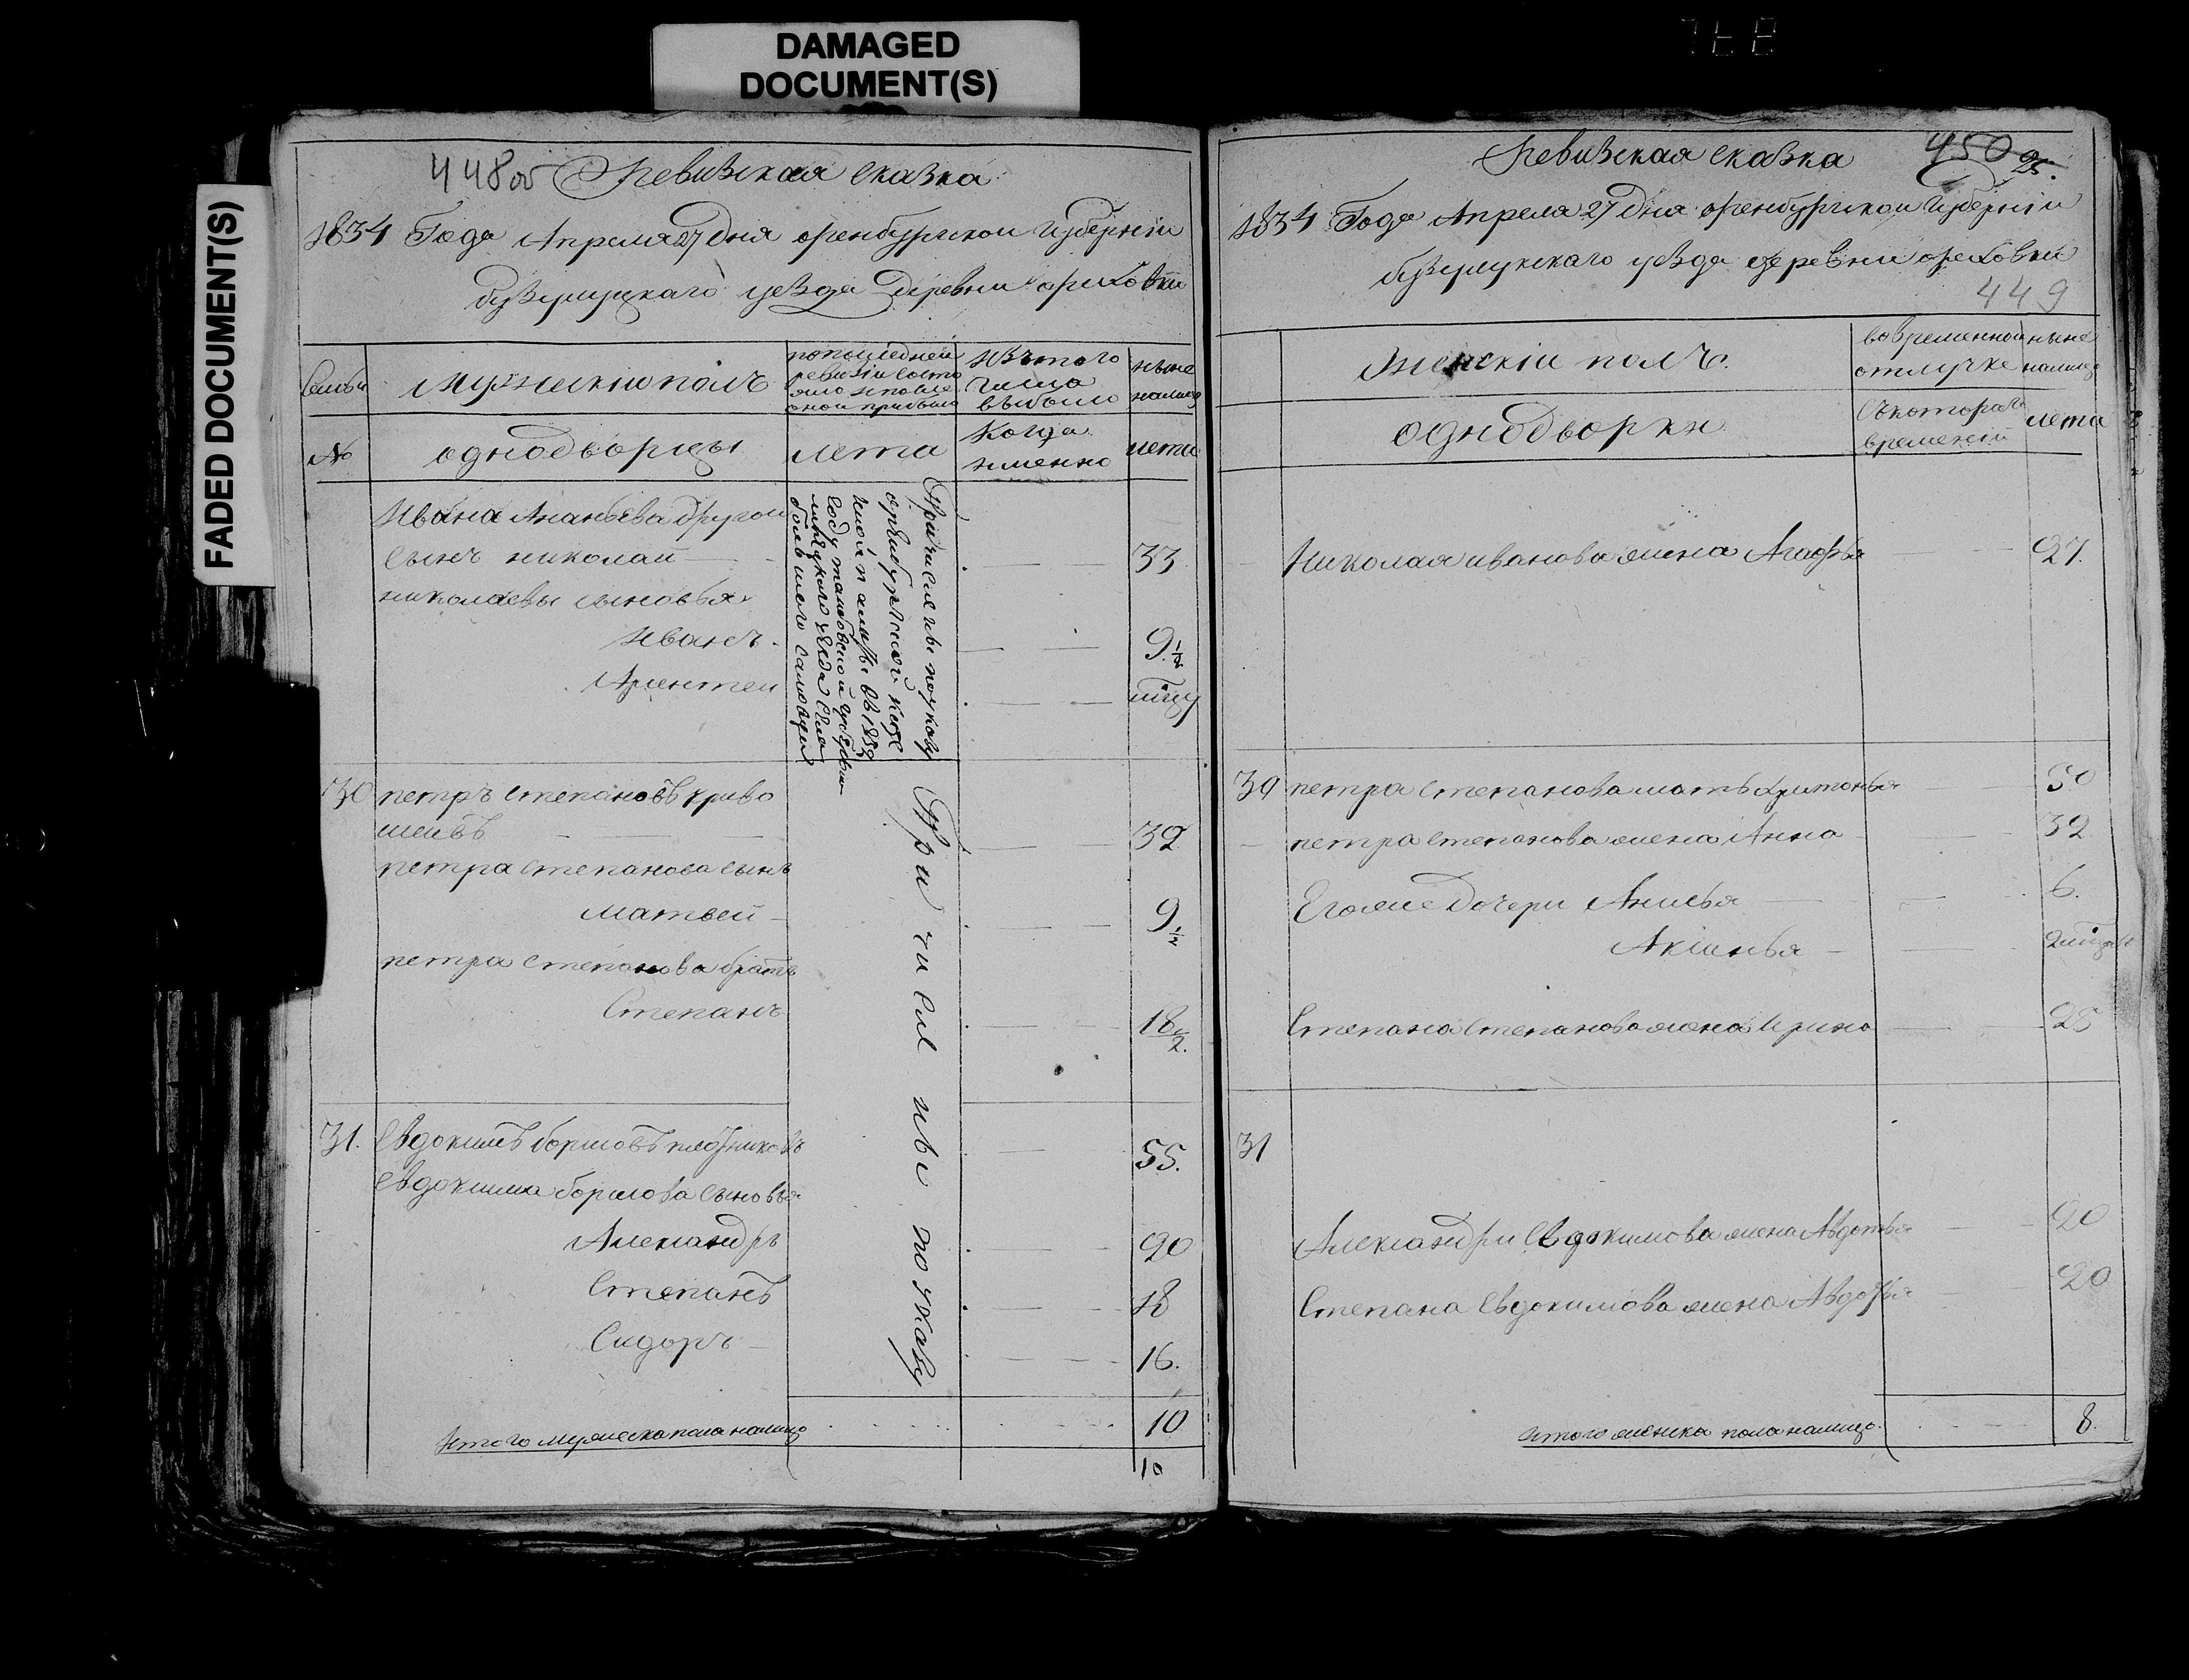 DAMAGED
DOCUMENT(S)
FADED DOCUMENT(S)
448 об Ревизская сказка
1834 Года Апреля 27 дня оренбургской губернии
бузулуцкаго уезда деревни ореховки
Семьи
мужескии полъ
попоследней
ревизии состо
яло и после
оной прибыло
Изътого
числа
выбыло
ныне
налицо
№
однодворцы
лета
Когда
именно
лета
Ивана Ананьева другой
сынъ николай
33
николаевы сыновья
Иванъ
9 1/2
Арентеи
Причислены поуказу
оренбургской казе
ной палаты
году тамбовской губернии
уезда села
большаго
30 петръ степановъ криво
шеивъ
32
петра степанова сынъ
матвей
9 1/2
петра степанова братъ
Степанъ
18 1/2
31. Евдокимъ борисовъ плотниковъ
55.
Евдокима борисова сыновья
Александръ
20
Степанъ
18
Сидоръ
16.
При чи сле ны по указу
Итого мужеска пола налицо
10
10
Ревизская сказка
450
25.
1834 Года Апреля 27 дня оренбургской губернии
бузулукскаго уезда деревни ореховки
449
женскіи полъ.
вовременной
отлучке
ныне
налицо
однодворки
Скотораго
времени
лета
Николая иванова жена Агафья
27.
30 петра степанова мать Харитонья
50
петра степанова жена Анна
32
Егоже дочери Анисья
6.
Аксинья
Степана степанова жена Ирина
25
31
Александры Евдокимова жена Авдотья
20
Степана Евдокимова жена Авдотья
20
итого женска пола налицо.
8.